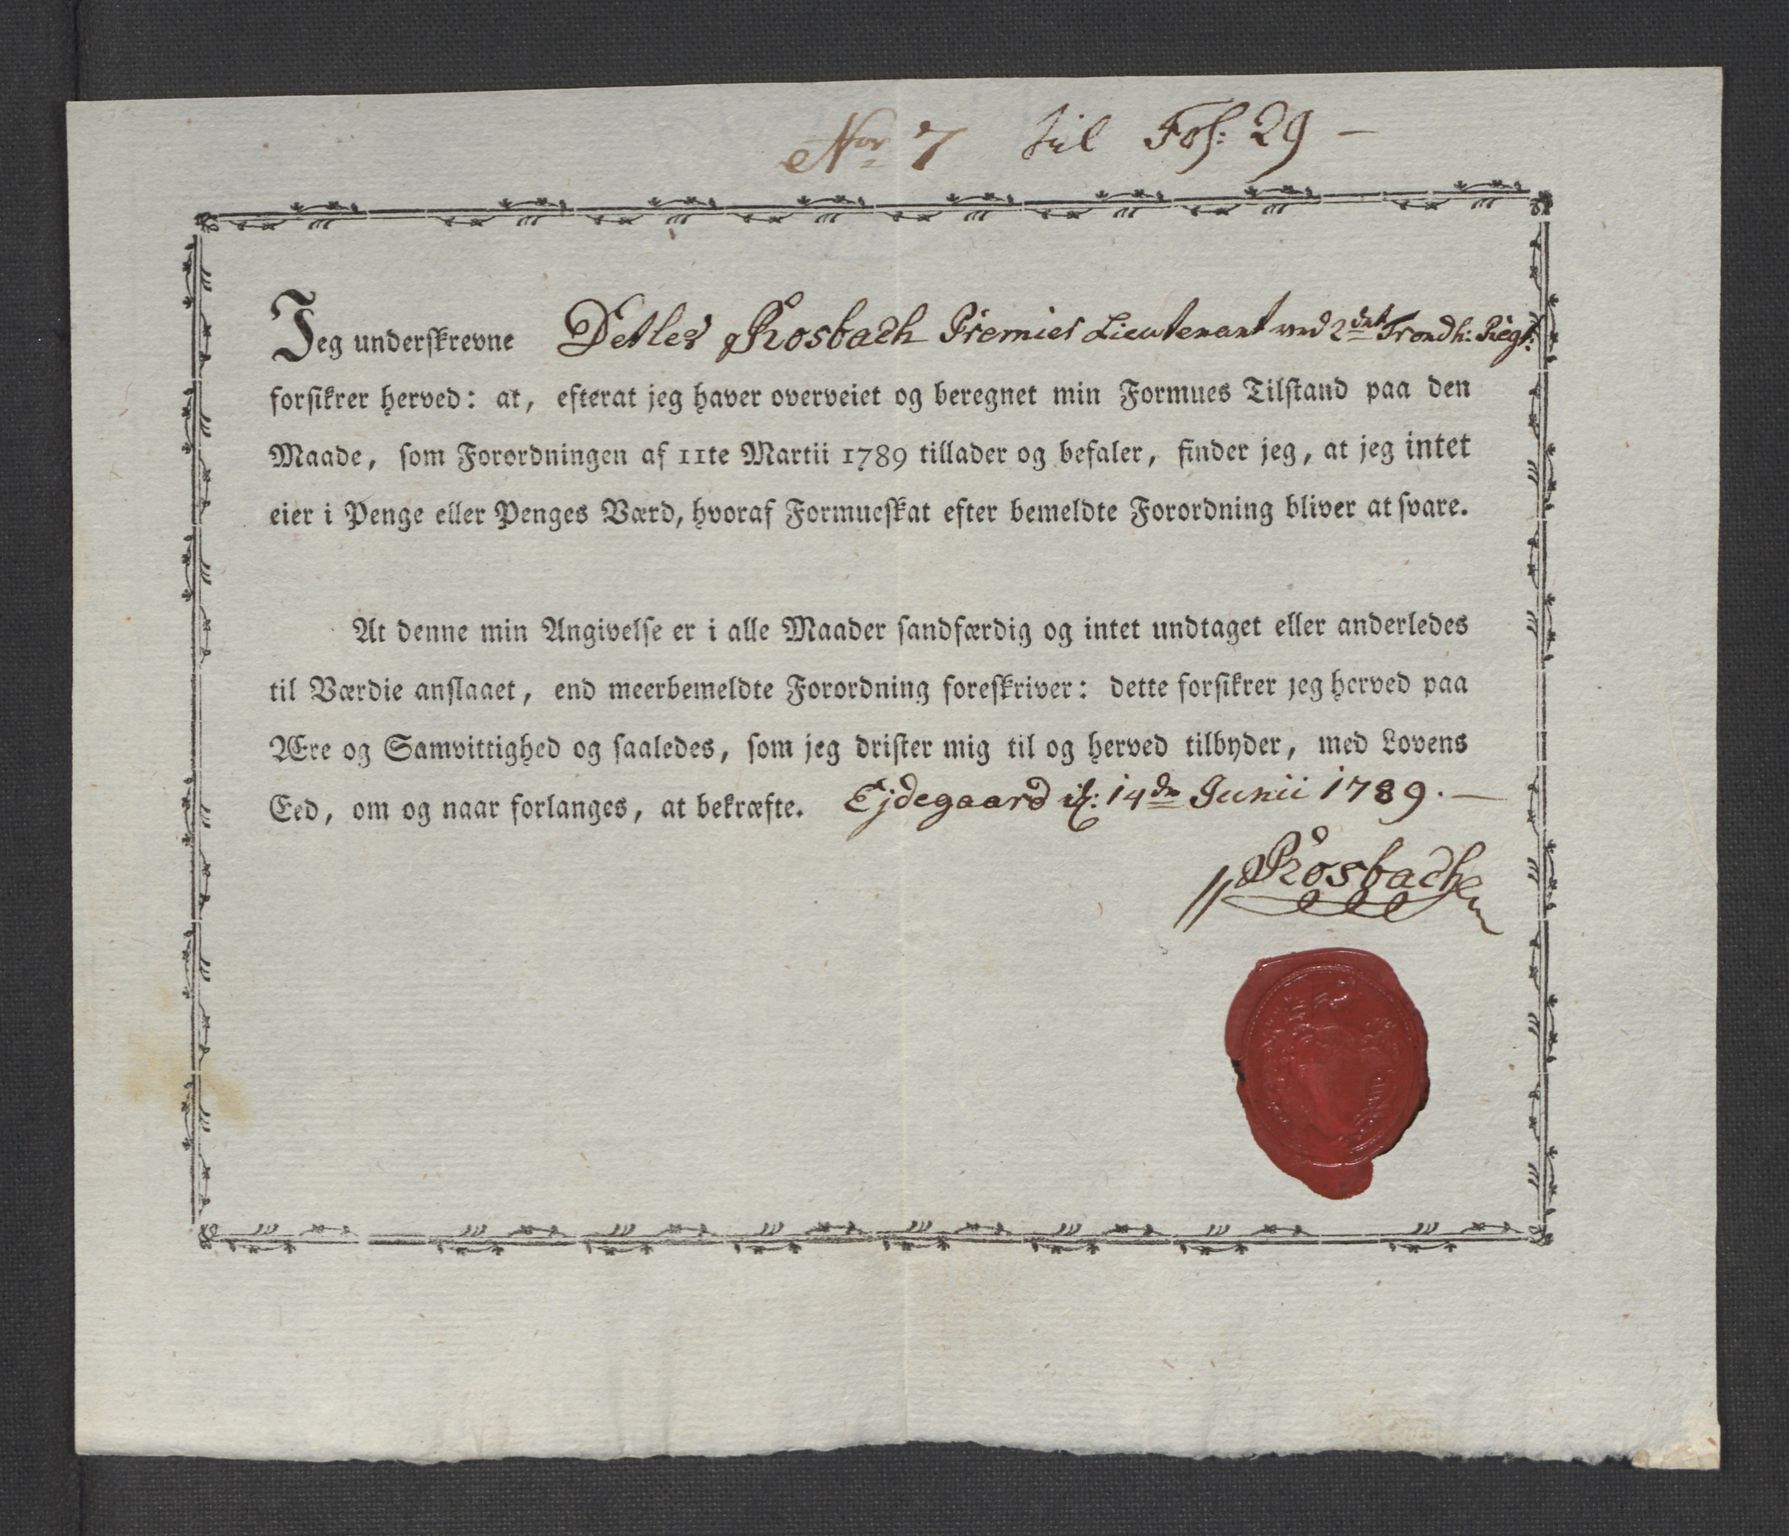 Nor 7 til Fol: 29 —
Jeg underskrevne Detlev Rosbach Premier Lieutenant ved 2det Trondh: Regt:
forsikrer herved: at, efterat jeg haver overveiet og beregnet min Formues Tilstand paa den
Maade, som Forordningen af 11te Martii 1789 tillader og befaler, finder jeg, at jeg intet
eier i Penge eller Penges Værd, hvoraf Formueskat efter bemeldte Forordning bliver at svare.
At denne min Angivelse er i alle Maader sandfærdig og intet undtaget eller anderledes
til Værdie anslaaet, end meerbemeldte Forordning foreskriver: dette forsikrer jeg herved paa
Ære og Samvittighed og saaledes, som jeg drister mig til og herved tilbyder, med Lovens
Eed, om og naar forlanges, at bekræfte. Ejdegaard d: 14de Junii 1789. —
Rosbach